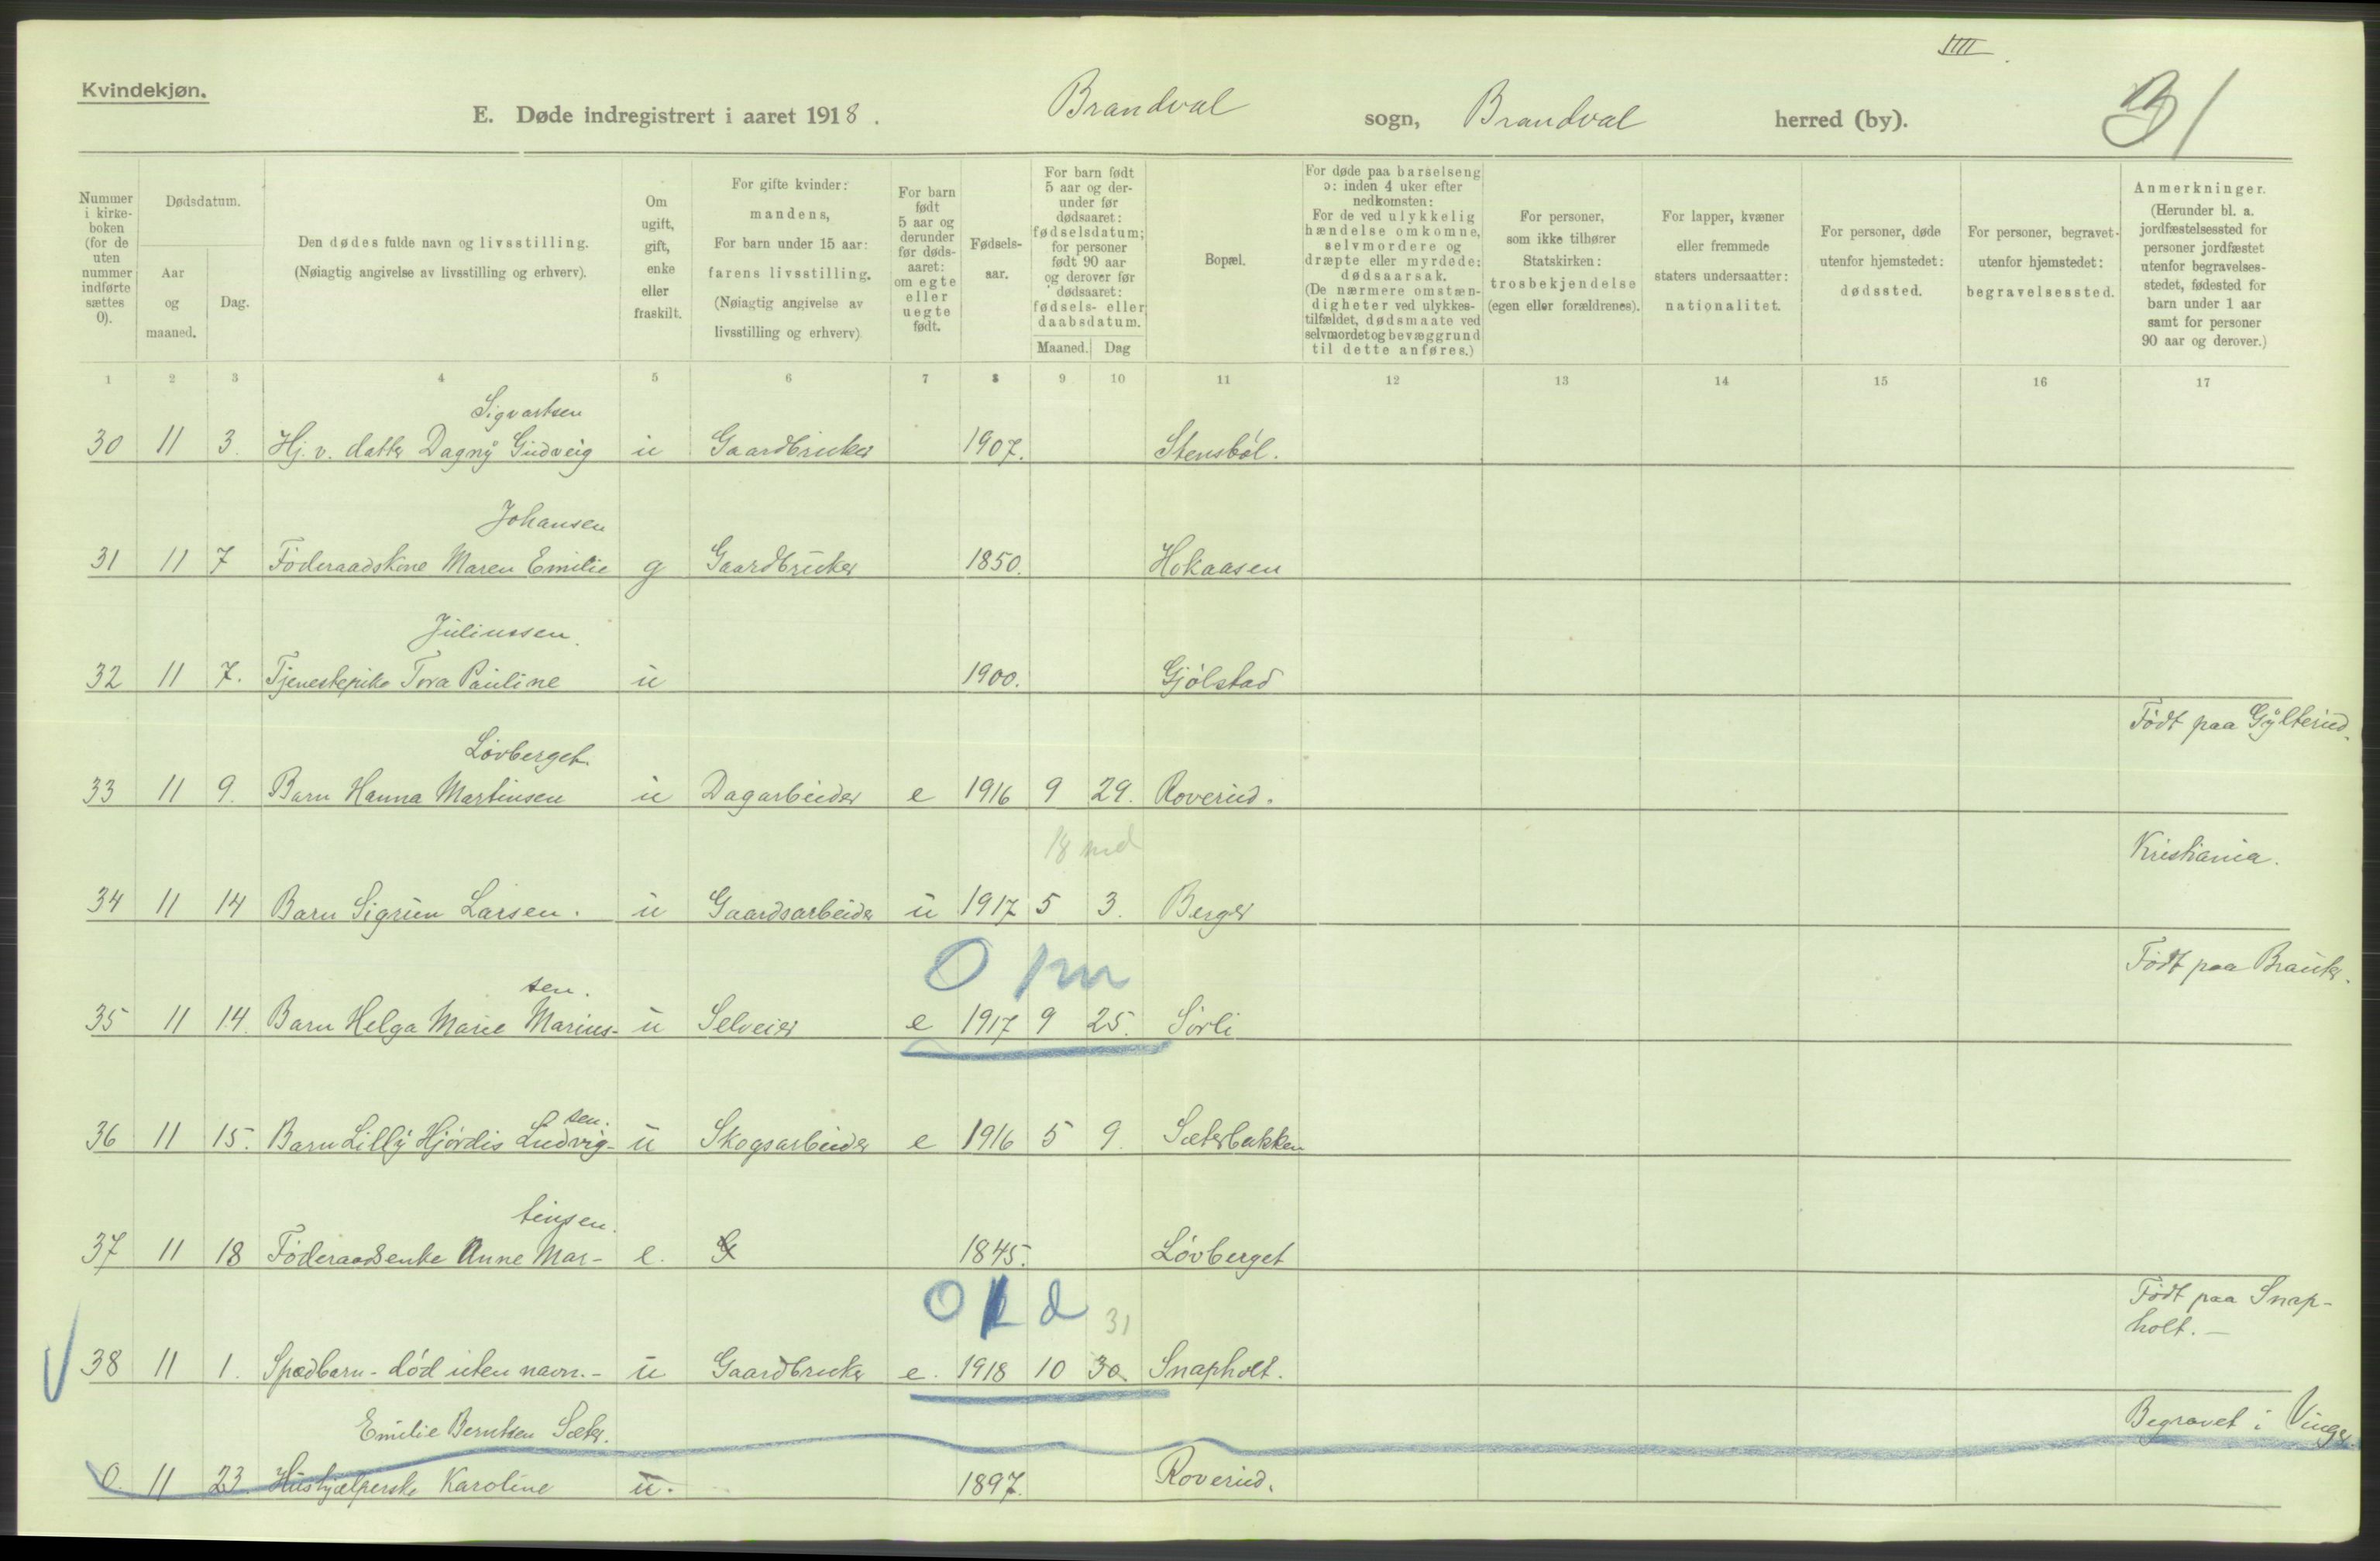 IIII
Kvindekjøn.
E. Døde indregistrert i aaret 1918. Brandval sogn, Brandval herred (by).
Nummer i kirkeboken (for de uten nummer indførte sættes 0).
Dødsdatum.
Aar og maaned.
Dag.
Den dødes fulde navn og livsstilling.
(Nøiagtig angivelse av livsstilling og erhverv).
Om ugift, gift, enke eller fraskilt.
For gifte kvinder: mandens,
For barn under 15 aar: farens livsstilling.
(Nøiagtig angivelse av livsstilling og erhverv)
For barn født 5 aar og derunder før dødsaaret: om egte eller uegte født.
Fødselsaar.
For barn født 5 aar og derunder før dødsaaret: fødselsdatum; for personer født 90 aar og derover før dødsaaret: fødsels- eller daabsdatum.
Maaned. Dag
Bopæl.
For døde paa barselseng ɔ: inden 4 uker efter nedkomsten:
For de ved ulykkelig hændelse omkomne, selvmordere og dræpte eller myrdede: dødsaarsak.
(De nærmere omstændigheter ved ulykkestilfældet, dødsmaate ved selvmordet og bevæggrund til dette anføres.)
For personer, som ikke tilhører Statskirken: trosbekjendelse (egen eller forældrenes).
For lapper, kvæner eller fremmede staters undersaatter: nationalitet.
For personer, døde utenfor hjemstedet: dødssted.
For personer, begravet utenfor hjemstedet: begravelsessted.
Anmerkninger.
(Herunder bl. a. jordfæstelsessted for personer jordfæstet utenfor begravelsesstedet, fødested for barn under 1 aar samt for personer 90 aar og derover.)
1 2 3 4 5 6 7 8 9 10 11 12 13 14 15 16 17
Sigvartsen
30 11 3. Hj. v. datter Dagny Gudveig u Gaardbruker 1907. Stensbøl.
Johansen
31 11 7 Føderaadskone Maren Emilie g Gaardbruker 1850. Hokaasen
Juliussen.
32 11 7. Tjenestepike Tora Pauline u 1900. Gjølstad
Født paa Gylterud.
Løvberget.
33 11 9. Barn Hanna Martinsen u Dagarbeider e 1916 9 29. Roverud.
18 md
Kristiania.
34 11 14 Barn Sigrun Larsen. u Gaardsarbeider u 1917 5 3. Berger
Født paa Brauter.
sen.
35 11 14. Barn Helga Marie Marius- u Selveier e 1917 9 25. Sørli
sen.
36 11 15. Barn Lilly Hjördis Ludvig- u Skogsarbeider e 1916 5 9. Sæterbakken
tinsen.
37 11 18 Føderaadsenke Anne Mar- e. G 1845. Løvberget
31
Født paa Snap-
holt. —
38 11 1. Spædbarn - død uten navn. - u Gaardbruker e. 1918 10 30. Snapholt.
Emilie Berntsen Sæter.
Begravet i Vinger.
0. 11 23. Hushjælperske Karoline u. 1897. Roverud.